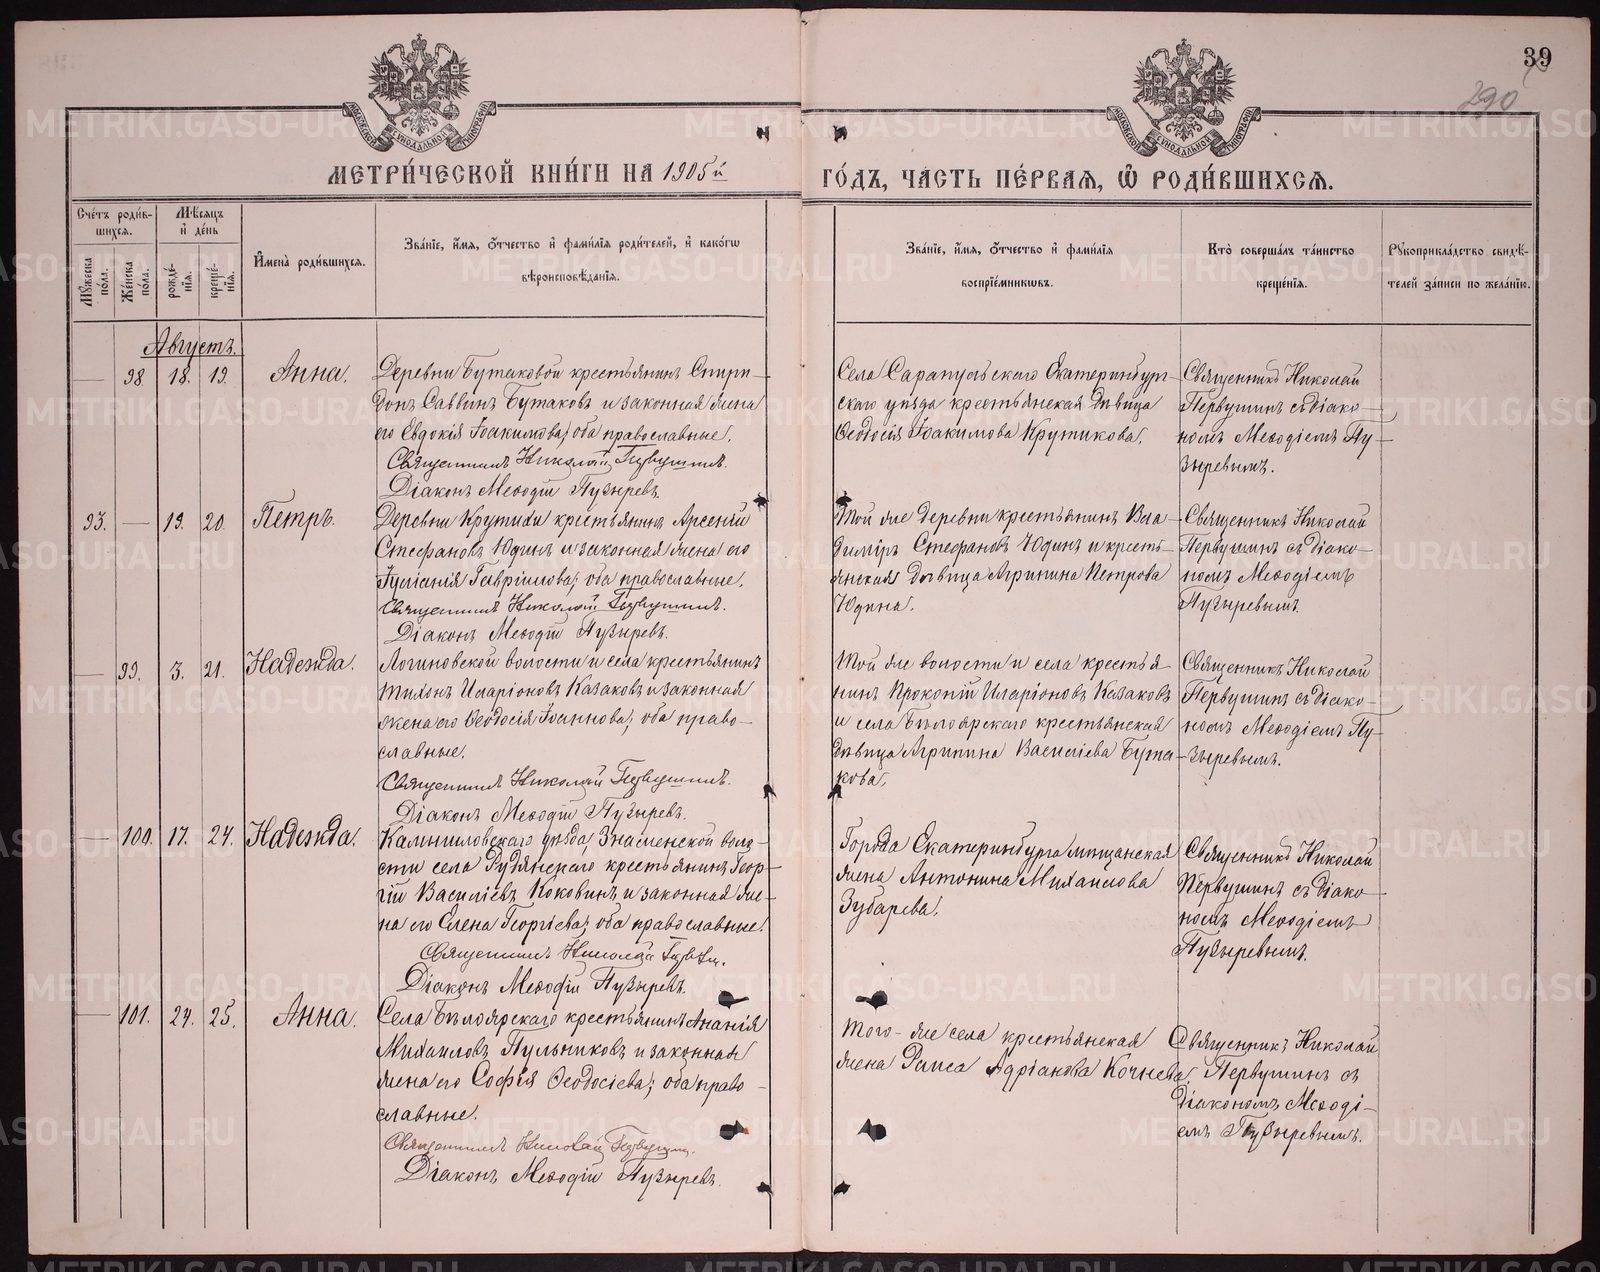 39
290
МЕТРИ́ЧЕСКОЙ КНИ́ГИ НА 1905й
ГО́ДЪ, ЧА́СТЬ ПЕ́РВАЯ, Ѡ҆ РОДИ́ВШИХСѦ.
Сче́тъ роди́в-
шихся.
Мужеска по́ла.
Же́нска по́ла.
Мѣ́сяцъ
и҆ де́нь
рожде́-
нїя.
креще́-
нїя.
И҆мена̀ роди́вшихся.
Зва́нїе, и҆́мя, ѻ҆́тчество и҆ фами́лїя роди́телей, и҆ како́гѡ
вѣроисповѣ́данїя.
Зва́нїе, и҆́мя, ѻ҆́тчество и҆ фами́лїя
воспрїе́мникѡвъ.
Кто̀ соверша́лъ та́инство
креще́нїя.
Рукоприкла́дство свидѣ́-
телей за́писи по жела́нїю.
Августъ.
— 98 18. 19. Анна.
Деревни Бутаковой крестьянинъ Спири-
донъ Саввинъ Бутаковъ и законная жена
его Евдокія Іоакимова, оба православные.
Священникъ Николай Первушинъ.
Діаконъ Меѳодій Пузыревъ.
Села Сарапульскаго Екатеринбург-
скаго уѣзда крестьянская дѣвица
Ѳеодосія Іоакимова Крутикова.
Священникъ Николай
Первушинъ съ діако-
номъ Меѳодіемъ Пу-
зыревымъ.
93. — 19. 20. Петръ.
Деревни Крутихи крестьянинъ Арсеній
Стефановъ Юдинъ и законная жена его
Іуліанія Гавріилова, оба православные.
Священникъ Николай Первушинъ.
Діаконъ Меѳодій Пузыревъ.
Той же деревни крестьянинъ Вла-
диміръ Стефановъ Юдинъ и кресть-
янская дѣвица Агрипина Петрова
Юдина.
Священникъ Николай
Первушинъ съ діако-
номъ Меѳодіемъ
Пузыревымъ.
— 99. 3. 21. Надежда.
Логиновской волости и села крестьянинъ
Тихонъ Иларіоновъ Казаковъ и законная
жена его Ѳеодосія Іоаннова, оба право-
славные.
Священникъ Николай Первушинъ.
Діаконъ Меѳодій Пузыревъ.
Той же волости и села крестья-
нинъ Прокопій Иларіоновъ Казаковъ
и села Бѣлоярскаго крестьянская
дѣвица Агрипина Василіева Бута-
кова.
Священникъ Николай
Первушинъ съ діако-
номъ Меѳодіемъ Пу-
зыревымъ.
— 100. 17. 24. Надежда.
Камышловскаго уѣзда, Знаменской воло-
сти села Рудянскаго крестьянинъ Геор-
гій Василіевъ Коковинъ и законная же-
на его Елена Георгіева, оба православные.
Священникъ Николай
Діаконъ Меѳодій Пузыревъ.
Города Екатеринбурга мѣщанская
жена Антонина Михаилова
Зубарева.
Священникъ Николай
Первушинъ съ діако-
номъ Меѳодіемъ
Пузыревымъ.
— 101. 24. 25. Анна.
Села Бѣлоярскаго крестьянинъ Ананія
Михаиловъ Пульниковъ и законная
жена его Софія Ѳеодосіева, оба право-
славные.
Священникъ Николай Первушинъ.
Діаконъ Меѳодій Пузыревъ.
Того-же села крестьянская
жена Раиса Адріанова Кочнева.
Священникъ Николай
Первушинъ съ
діакономъ Меѳоді-
емъ Пузыревымъ.
METRIKI.GASO-URAL.RU